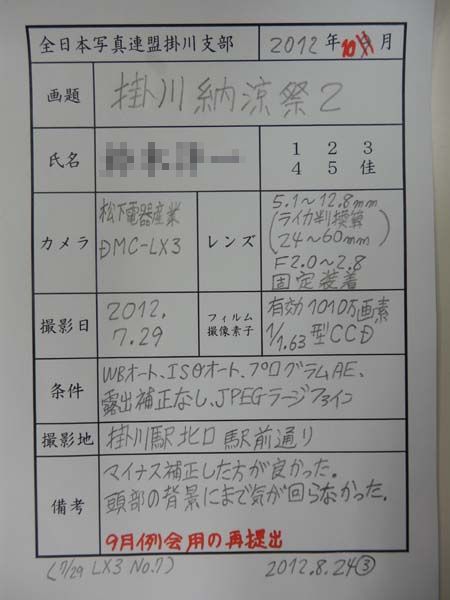 全日本写真連盟掛川支部 2012年10月
画題 掛川納涼祭2
氏名
1 2 3
4 5 佳
カメラ 松下電器産業
DMC-LX3
レンズ 5.1~12.8mm
(ライカ判換算
24~60mm)
F2.0~2.8
固定装着
撮影日 2012.
7.29
フィルム
撮像素子
有効1010万画素
1/1.63型CCD
条件 WBオート、ISOオート、プログラムAE、
露出補正なし、JPEGラージファイン
撮影地 掛川駅北口 駅前通り
備考 マイナス補正した方が良かった。
頭部の背景にまで気が回らなかった。
9月例会用の再提出
(7/29 LX3 No.7) 2012.8.24③